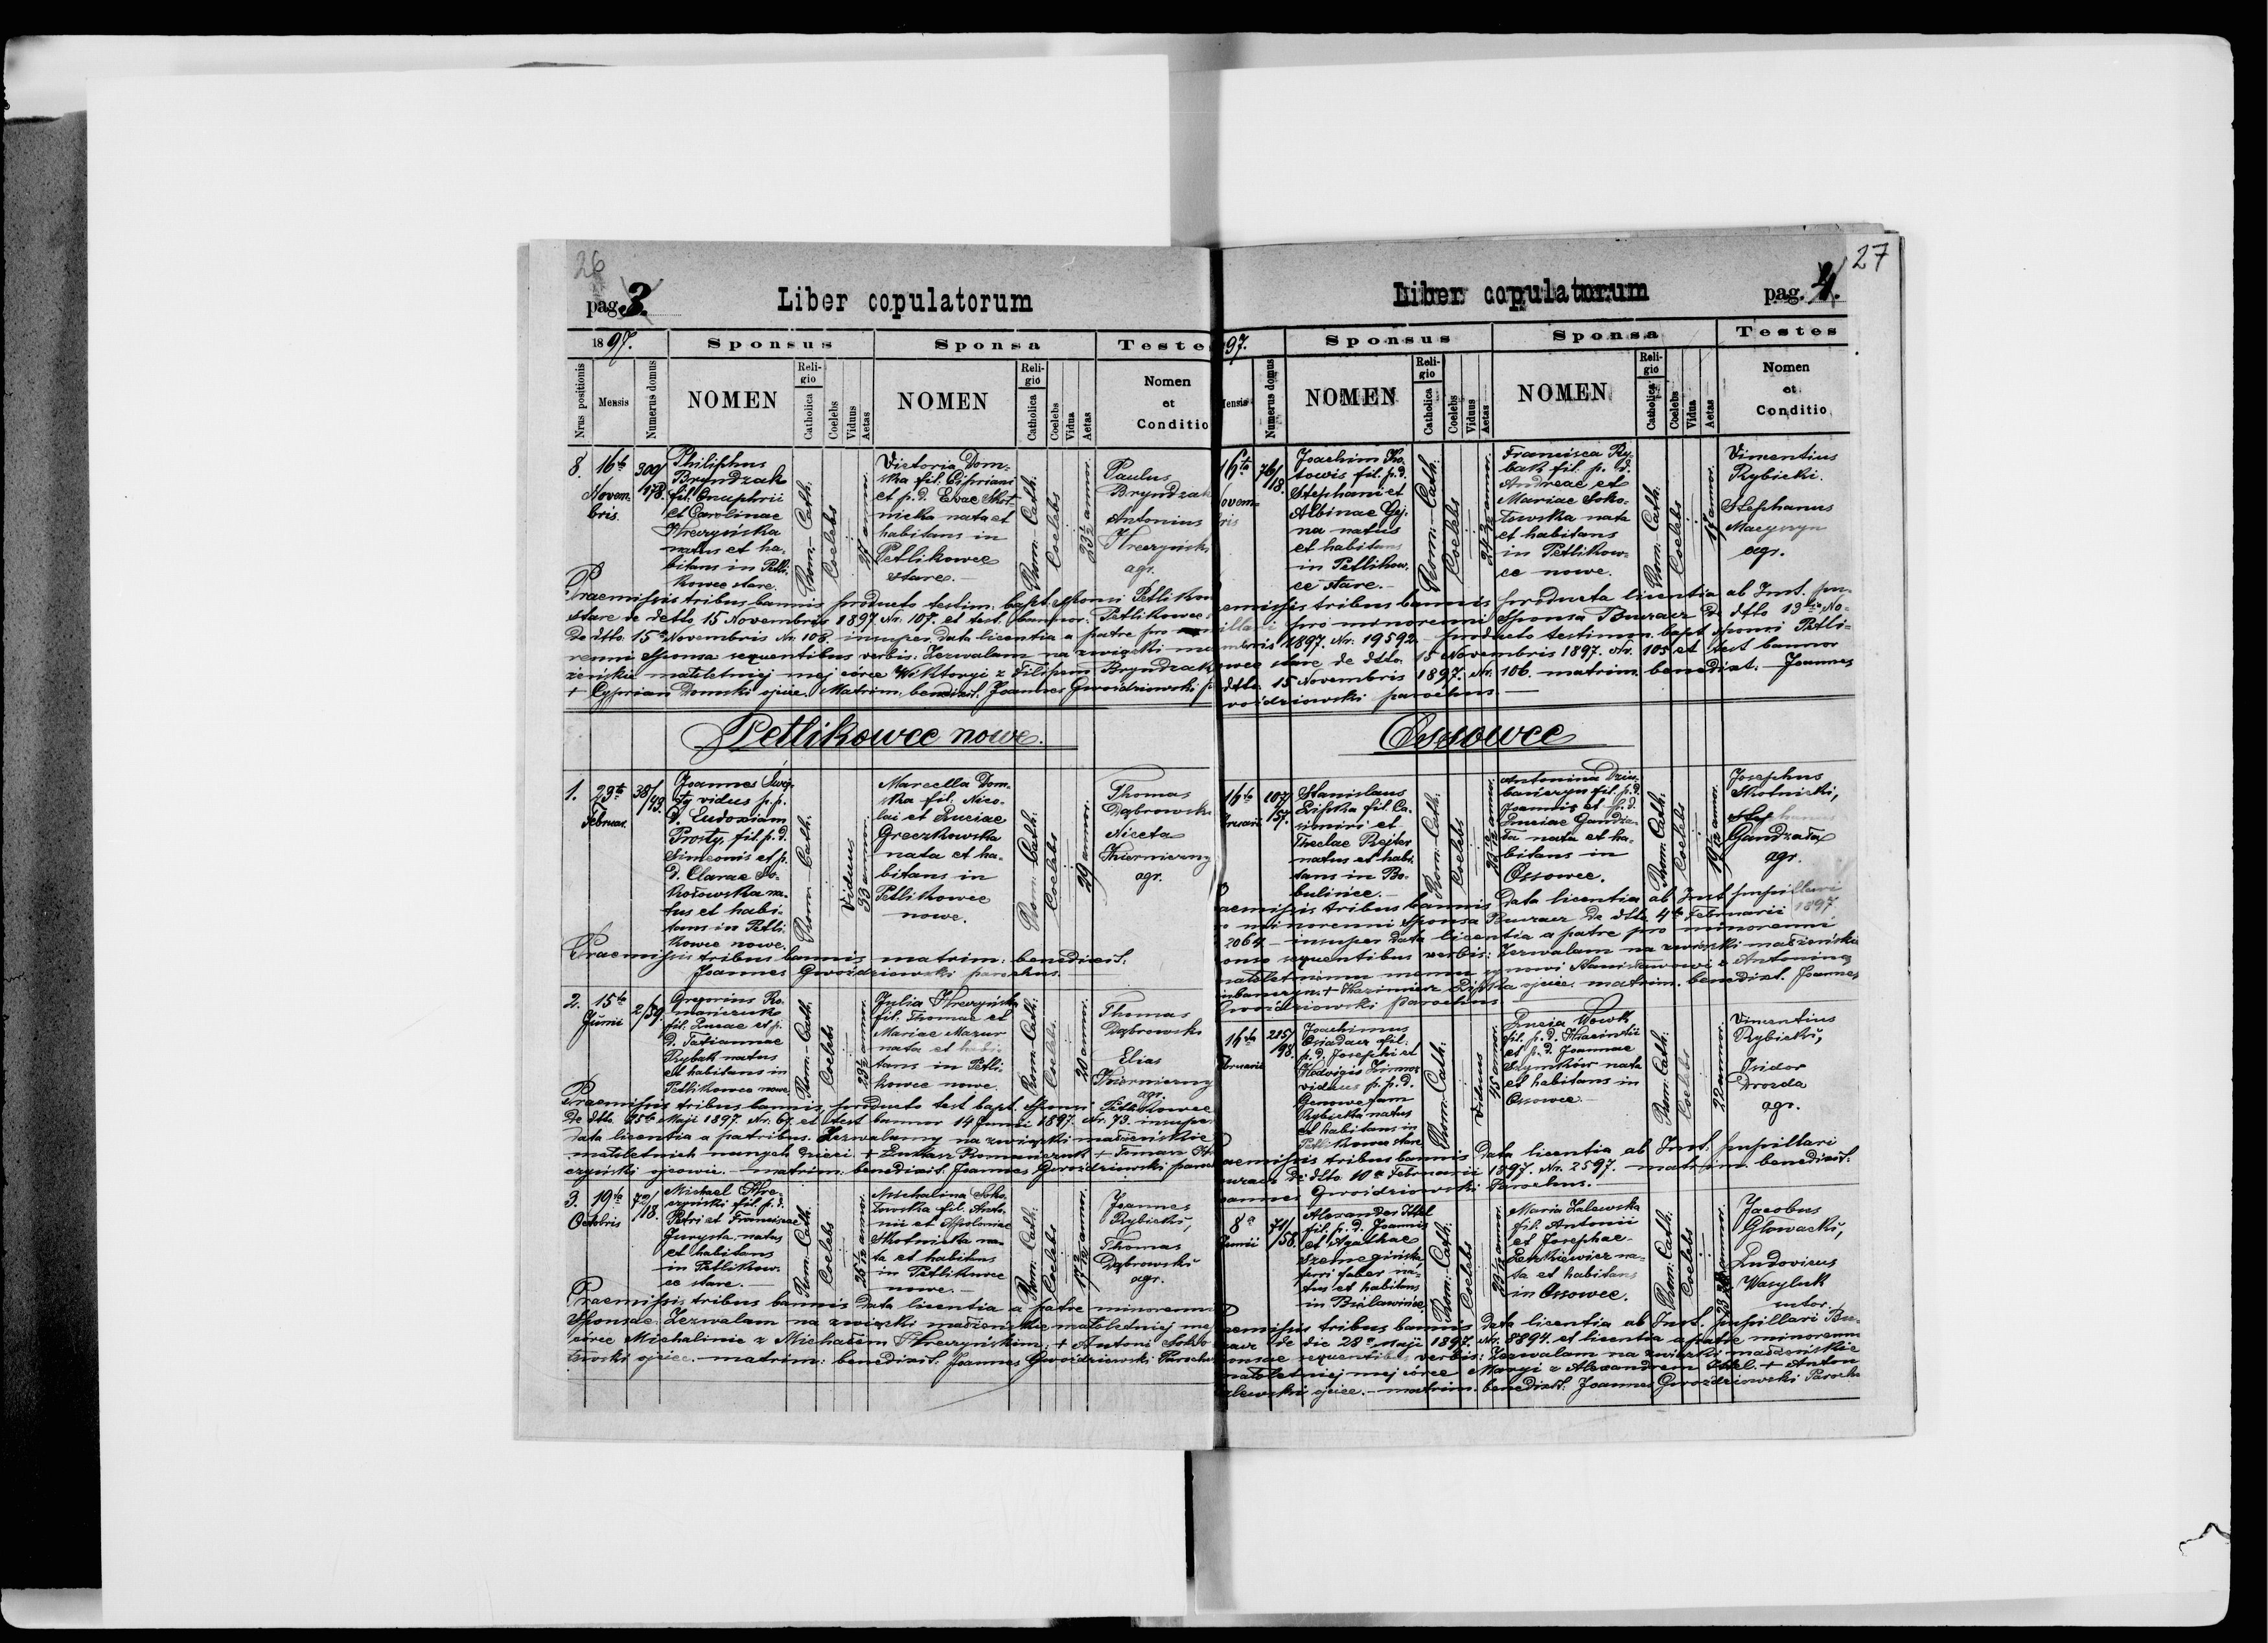 26
pag. 3.
Liber copulatorum
1897.
Sponsus
Sponsa
Teste
Nrus positionis
Mensis
Numerus domus
NOMEN
Religio
Catholica
Coelebs
Viduus
Aetas
NOMEN
Religio
Catholica
Coelebs
Vidua
Aetas
Nomen
et
Conditio
8. 16ta Novem-
bris.
309/178.
Philiphus
Bryndzak
fil. Onuphrii
et Carolinae
Hreczyńska
natus et ha-
bitans in Petli-
kowce stare.
Rom.-Cath.
Coelebs
annor.
Victoria Dom-
ska fil. Cipriani
et p. d. Evae Skot-
nicka nata et
habitans in
Petlikowce
stare.
Rom.-Cath.
Coelebs
annor.
Paulus
Bryndzak
Antonius
Hreczyńsk
agr.
Praemissis tribus bannis producto testim. bapt. sponsi Petlikow
stare de detto 15 Novembris 1897. Nr. 107. et test. bannor. Petlikowce
de dtto. 15a Novembris Nr. 108. insuper data licentia a patre pro
renni sponsa sequentibus verbis. Zezwalam na związki ma
żeńskie małoletniej mej córce Wiktoryi z Filipem Bryndzak
+ Cyprian Domski ojciec. Matrim. benedixit. Joannes Gwoździowski p
Petlikowce nowe.
1. 23ta
Februar.
38/43.
Joannes Świę-
ty vidus p. p.
d. Eudoxiam
Prosty, fil. p. d.
Simeonis et p.
d. Clarae So-
kołowska na-
tus et habi-
tans in Petli-
kowce nowe.
Rom.-Cath.
Viduus
33 annor.
Marcella Dom-
ska fil. Nico-
lai et Luciae
Greczkowska
nata et ha-
bitans in
Petlikowce
nowe.
Rom.-Cath.
Coelebs
29 annor.
Thomas
Dąbrowski
Niceta
agr.
Praemissis tribus bannis matrim: benedixit.
Joannes Gwoździowski parochus.
2. 15ta
Junii
2/59.
Gregorius Ro-
mańczuk
fil. Lucae et p.
d. Tatiannae
Rybak natus
et habitans in
Petlikowce nowe
Rom.-Cath.
Coelebs
annor.
Julia Hreczyńska
fil. Thomae et
Mariae Mazur
nata et habi-
tans in Petli-
kowce nowe.
Rom.-Cath.
Coelebs
20 annor.
Thomas
Dąbrowski
Elias
agr.
Praemissis tribus bannis, producto test. bapt. sponsi Petlikowce
de dtto. 25ta Maji 1897. Nr. 67. et test. bannor 14 Junii 1897. Nr. 73. insuper
data licentia a patribus. Zezwalamy na związki małżeńskie
małoletnich naszych dzieci + Łukasz Romańczuk + Tomasz Hre
czyński ojcowie. matrim: benedixit. Joannes Gwoździowski paroch
3. 19ta
Octobris
72/18.
Michael Hre-
czyński fil. p. d.
Petri et Franciscae
Jurysta natus
et habitans
in Petlikow-
ce stare.
Rom.-Cath.
Coelebs
annor.
Michalina Soko-
łowska fil. Anto-
nii et Apoloniae
Skotnicka na-
ta et habitans
in Petlikowce
nowe.
Rom.-Cath.
Coelebs
annor.
Joannes
Rybicki,
Thomas
Dąbrowski
agr.
Praemissis tribus bannis data licentia a patre minorenni
sponsae. Zezwalam na związki małżeńskie małoletniej mej
córce Michalinie z Michałem Hreczyńskim. + Antoni Soko-
łowski ojciec. matrim: benedixit. Joannes Gwoździowski Paroch
27
Liber copulatorum
pag. 4.
97.
Sponsus
Sponsa
Testes
Mensis
Numerus domus
NOMEN
Religio
Catholica
Coelebs
Viduus
Aetas
NOMEN
Religio
Catholica
Coelebs
Vidua
Aetas
Nomen
et
Conditio
16ta
ovem-
bris
76/18.
Joachim Ko-
towis fil. p. d.
Stephani et
Albinae Gy-
na natus
et habitans
in Petlikow-
ce stare.
Rom.-Cath.
Coelebs
annor.
Francisca Ry-
bak fil. p. d.
Andreae et
Mariae Soko-
łowska nata
et habitans
in Petlikow-
ce nowe.
Rom.-Cath.
Coelebs
annor.
Vincentius
Rybicki.
Stephanus
agr.
emissis tribus bannis producta licentia ab Inst. pu-
illari pro minorenni sponsa Buczacz de dtto 13tia No-
mbris 1897. Nr. 19592. producto testimon. bapt. sponsi Petli-
owce stare de dtto. 15 Novembris 1897. Nr. 105 et test bannor
dtto. 15 Novembris 1897. Nr. 106. matrim. benedixit. Joannes
woździowski parochus.
Ossowce
16ta
bruarii
107/157.
Stanislaus
Lipka fil. Ca-
simiri et
Theclae Rejter
natus et habi-
tans in Bo-
bulińce.
Rom.-Cath.
Coelebs
annor.
Antonina Dziu-
banczyn fil. p. d.
Joannis et p. d.
Luciae Gandza-
ła nata et ha-
bitans in
Ossowce.
Rom.-Cath.
Coelebs
annor.
Josephus
Skotnicki,
Stephanus
Gandzała
agr.
aemissis tribus bannis data licentia ab Inst pupillari
o minorenni sponsa Buczacz de dtto. 4ta Februarii 1897
2064. insuper data licentia a patre pro minorenni
onso sequentibus verbis: Zezwalam na związki małżeńskie
małoletniemu memu synowi Stanisławowi z Antoniną
iubanczyn. + Kazimierz Lipka ojciec. matrim. benedixit. Joannes
Gwoździowski parochus.
16ta
bruarii
215/198.
Joachimus
Osiadacz fil.
p. d. Josephi et
Hedvigis
viduus p. p. d.
Genowefam
Rybicka natus
et habitans in
Petlikowce stare
Rom.-Cath.
Viduus
45 annor.
Lucia Wowk
fil. p. d.
et p. d. Joannae
Szymków nata
et habitans in
Ossowce.
Rom.-Cath.
Coelebs
22 annor.
Vincentius
Rybicki,
Isidor
Drozda
agr.
aemissis tribus bannis data licentia ab Inst. pupillari
uczacz de dtto 10a Februarii 1897. Nr. 2597. matrim. benedixit.
oannes Gwoździowski Parochus.
8a
Junii
71/58.
Alexander Ittel
fil. p. d. Joannis
et Agathae
ferri faber na-
tus et habitans
in Bielawińce.
Rom.-Cath.
Coelebs
annor.
Maria Zalewska
fil. Antonii
et Josephae
Leszkiewicz na-
ta et habitans
in Ossowce.
Rom.-Cath.
Coelebs
annor.
Jacobus
Głowacki,
Ludovicus
Wasyluk
sutor.
aemissis tribus bannis data licentia ab Inst. pupillari Bu-
czacz de die 28a Maji 1897. Nr. 8894. et licentia a patre minorenni
ponsae sequentibus verbis: Zezwalam na związki małżeńskie
małoletniej mej córce Maryi z Alexandrem Ittel. + Anton
Zalewski ojciec. matrim. benedixit: Joannes Gwoździowski Paroch